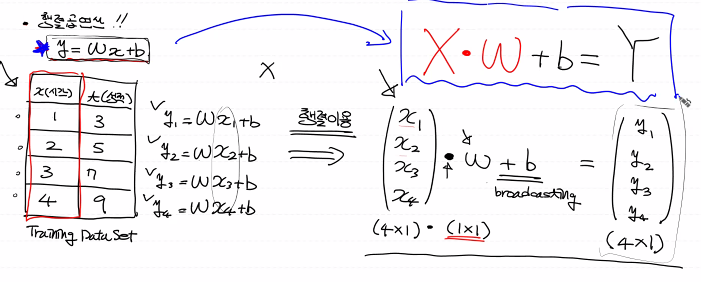 • 행렬곱연산 !!
y = Wx+b
X • W + b = Y
X
x(시간) t(성적)
1 3
2 5
3 7
4 9
Training Data Set
y₁ = Wx₁+b
y₂ = Wx₂+b
y₃ = Wx₃+b
y₄ = Wx₄+b
행렬이용
x₁
x₂
x₃
x₄
• W + b =
broadcasting
y₁
y₂
y₃
y₄
(4×1) • (1×1)
(4×1)